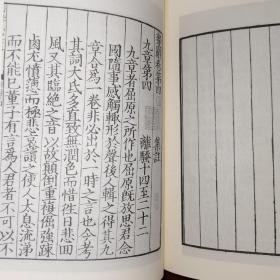 楚辭卷第四　集註
九章第四　離騷十四至二十二
九章者屈原之所作也屈原既放思君念
國隨事感觸輒形於聲後人輯之得其九
章合爲一卷非必出於一時之言也今考
其詞大氐多直致無潤色而惜往日悲回
風又其臨絕之音以故顚倒重複倔強疎
鹵尤憤懣而極悲哀讀之使人太息流涕
而不能已董子有言爲人君者不可以不